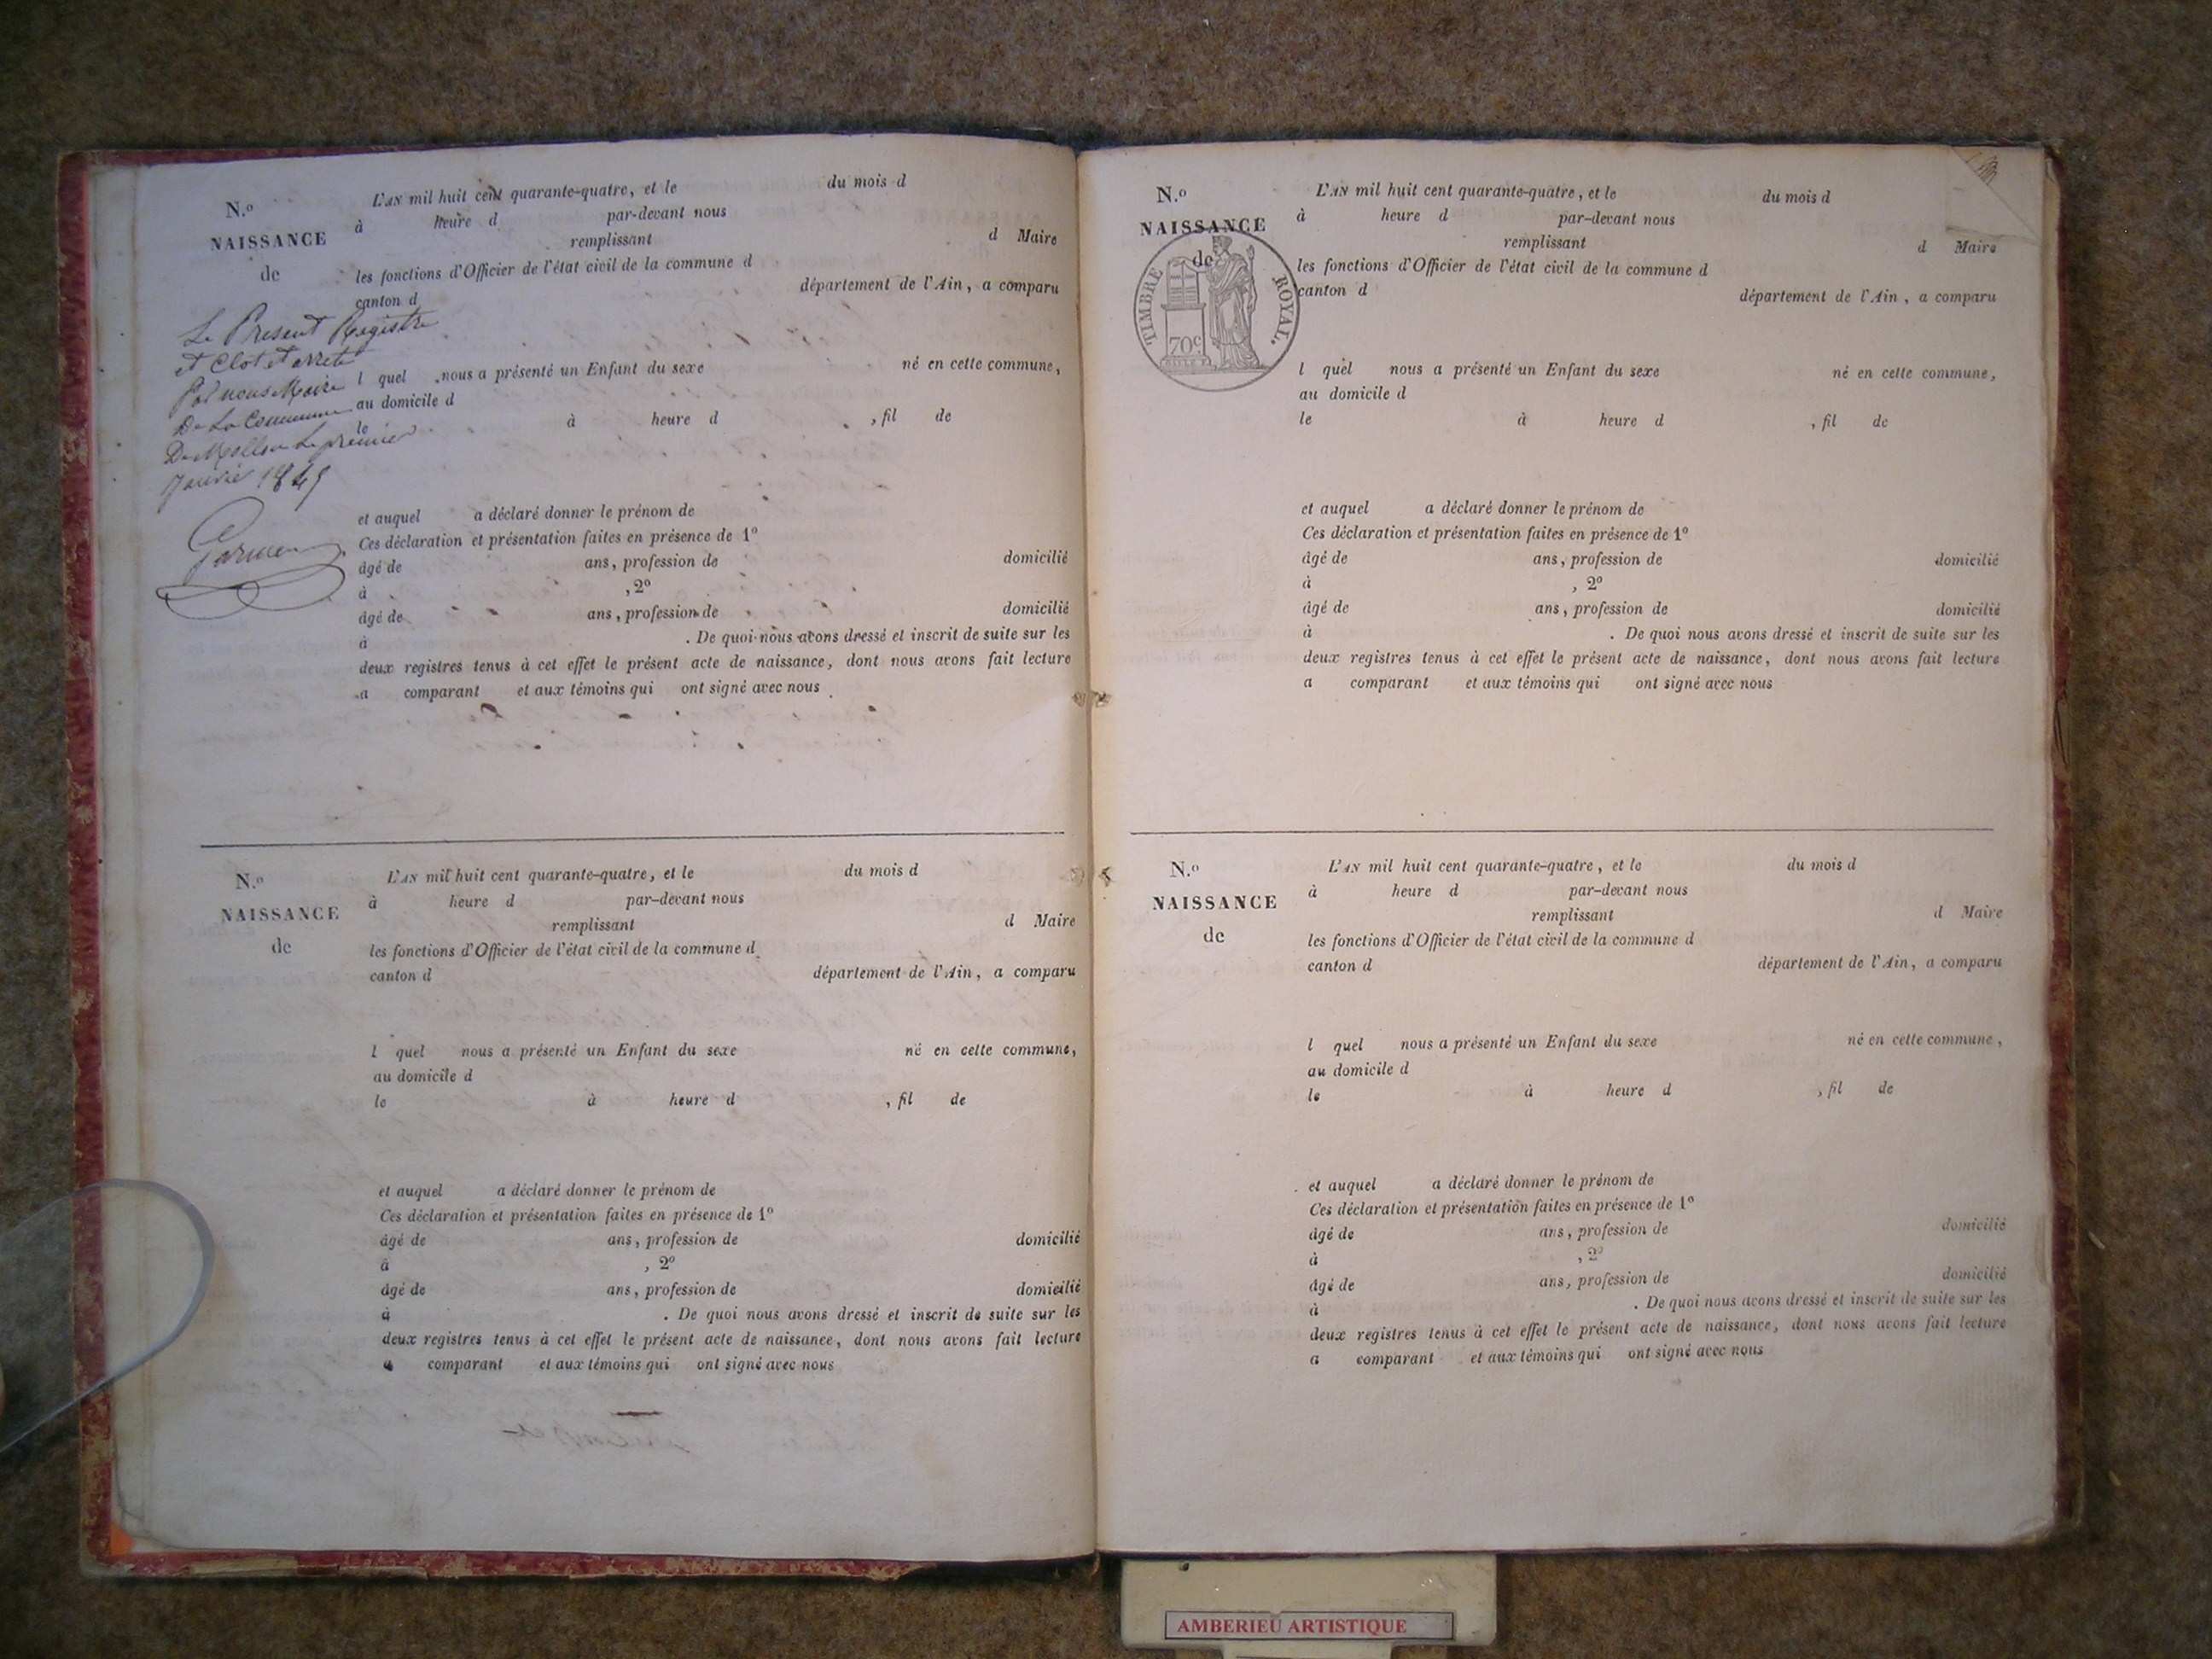 N.o
NAISSANCE
de
L'AN mil huit cent quarante-quatre, et le du mois d
à heure d par-devant nous
remplissant d Maire
les fonctions d'Officier de l'état civil de la commune d
canton d département de l'Ain, a comparu
Le Present Registre
et Clot et arreté
Par nous Maire
De La Commune
De Le premier
Janvié
l quel nous a présenté un Enfant du sexe né en cette commune,
au domicile d
le à heure d , fil de
et auquel a déclaré donner le prénom de
Ces déclaration et présentation faites en présence de 1o
âgé de ans, profession de domicilié
à , 2o
âgé de ans, profession de domicilié
à . De quoi nous avons dressé et inscrit de suite sur les
deux registres tenus à cet effet le présent acte de naissance, dont nous avons fait lecture
a comparant et aux témoins qui ont signé avec nous
N.o
NAISSANCE
de
L'AN mil huit cent quarante-quatre, et le du mois d
à heure d par-devant nous
remplissant d Maire
les fonctions d'Officier de l'état civil de la commune d
canton d département de l'Ain, a comparu
l quel nous a présenté un Enfant du sexe né en cette commune,
au domicile d
le à heure d , fil de
et auquel a déclaré donner le prénom de
Ces déclaration et présentation faites en présence de 1o
âgé de ans, profession de domicilié
à , 2o
âgé de ans, profession de domicilié
à . De quoi nous avons dressé et inscrit de suite sur les
deux registres tenus à cet effet le présent acte de naissance, dont nous avons fait lecture
a comparant et aux témoins qui ont signé avec nous
N.o
NAISSANCE
de
TIMBRE ROYAL.
70c
L'AN mil huit cent quarante-quatre, et le du mois d
à heure d par-devant nous
remplissant d Maire
les fonctions d'Officier de l'état civil de la commune d
canton d département de l'Ain, a comparu
l quel nous a présenté un Enfant du sexe né en cette commune,
au domicile d
le à heure d , fil de
et auquel a déclaré donner le prénom de
Ces déclaration et présentation faites en présence de 1o
âgé de ans, profession de domicilié
à , 2o
âgé de ans, profession de domicilié
à . De quoi nous avons dressé et inscrit de suite sur les
deux registres tenus à cet effet le présent acte de naissance, dont nous avons fait lecture
a comparant et aux témoins qui ont signé avec nous
N.o
NAISSANCE
de
L'AN mil huit cent quarante-quatre, et le du mois d
à heure d par-devant nous
remplissant d Maire
les fonctions d'Officier de l'état civil de la commune d
canton d département de l'Ain, a comparu
l quel nous a présenté un Enfant du sexe né en cette commune,
au domicile d
le à heure d , fil de
et auquel a déclaré donner le prénom de
Ces déclaration et présentation faites en présence de 1o
âgé de ans, profession de domicilié
à , 2o
âgé de ans, profession de domicilié
à . De quoi nous avons dressé et inscrit de suite sur les
deux registres tenus à cet effet le présent acte de naissance, dont nous avons fait lecture
a comparant et aux témoins qui ont signé avec nous
AMBERIEU ARTISTIQUE